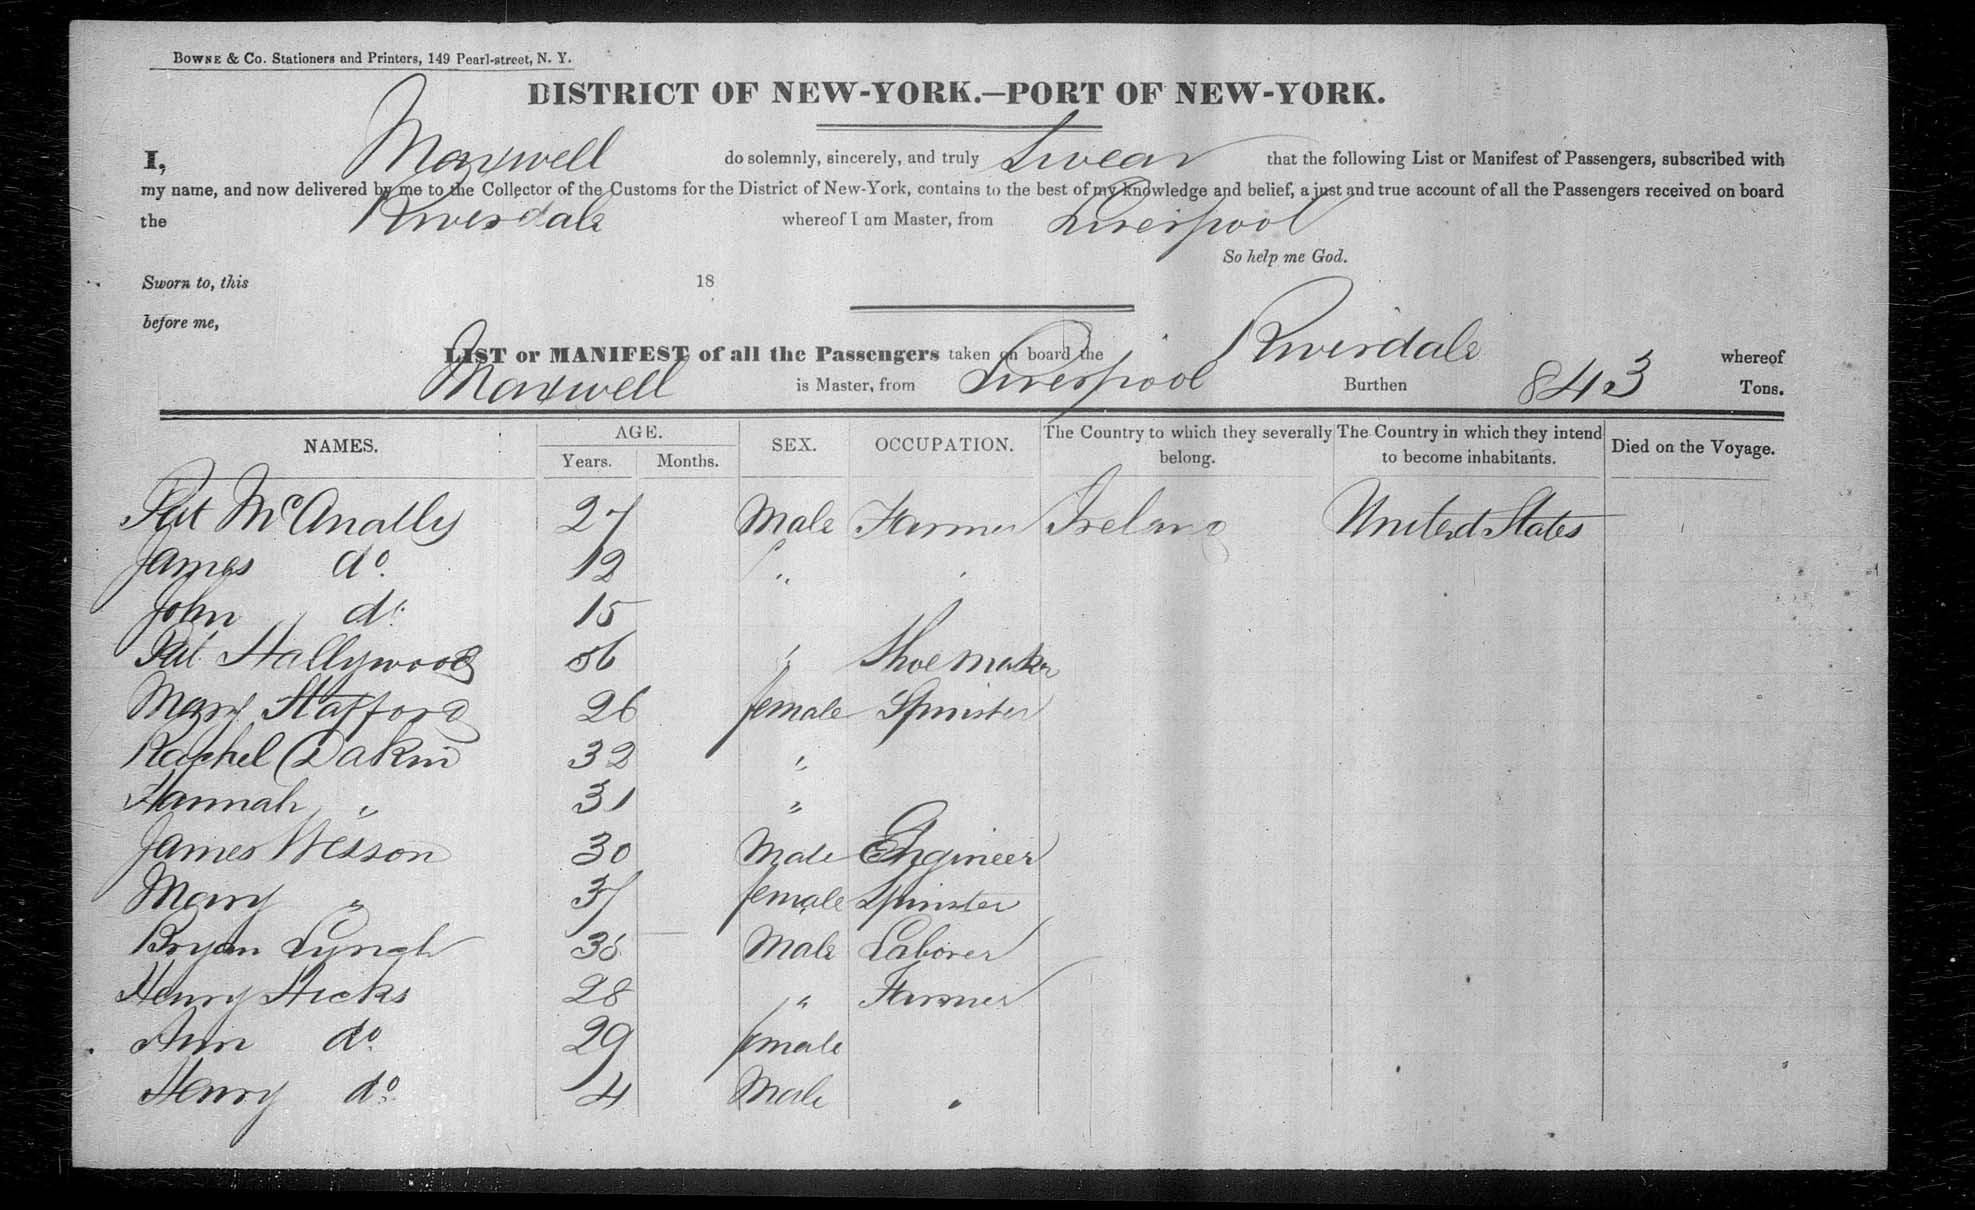 BOWNE & CO. Stationers and Printers, 149 Pearl-street, N. Y.
DISTRICT OF NEW-YORK.—PORT OF NEW-YORK.
I, Maxwell do solemnly, sincerely, and truly Swear that the following List or Manifest of Passengers, subscribed with
my name, and now delivered by me to the Collector of the Customs for the District of New-York, contains to the best of my knowledge and belief, a just and true account of all the Passengers received on board
the Riversdale whereof I am Master, from Liverpool
So help me God.
Sworn to, this 18
before me,
LIST or MANIFEST of all the Passengers taken on board the Riversdale whereof
Maxwell is Master, from Liverpool Burthen 843 Tons.
NAMES. AGE. Years. Months. SEX. OCCUPATION. The Country to which they severally belong. The Country in which they intend to become inhabitants. Died on the Voyage.
Pat McAnally 27 Male Farmer Ireland United States
James do. 12 "
John do. 15
Pat Hallywood 56 " Shoemaker
Mary Stafford 26 female Spinster
Rachel Dakin 32 "
Hannah " 31 "
James Wesson 30 Male Engineer
Mary " female Spinster
Bryan Lyngh Male Laborer
Henry Hicks 28 " Farmer
Ann do. 29 female
Henry do. 4 Male